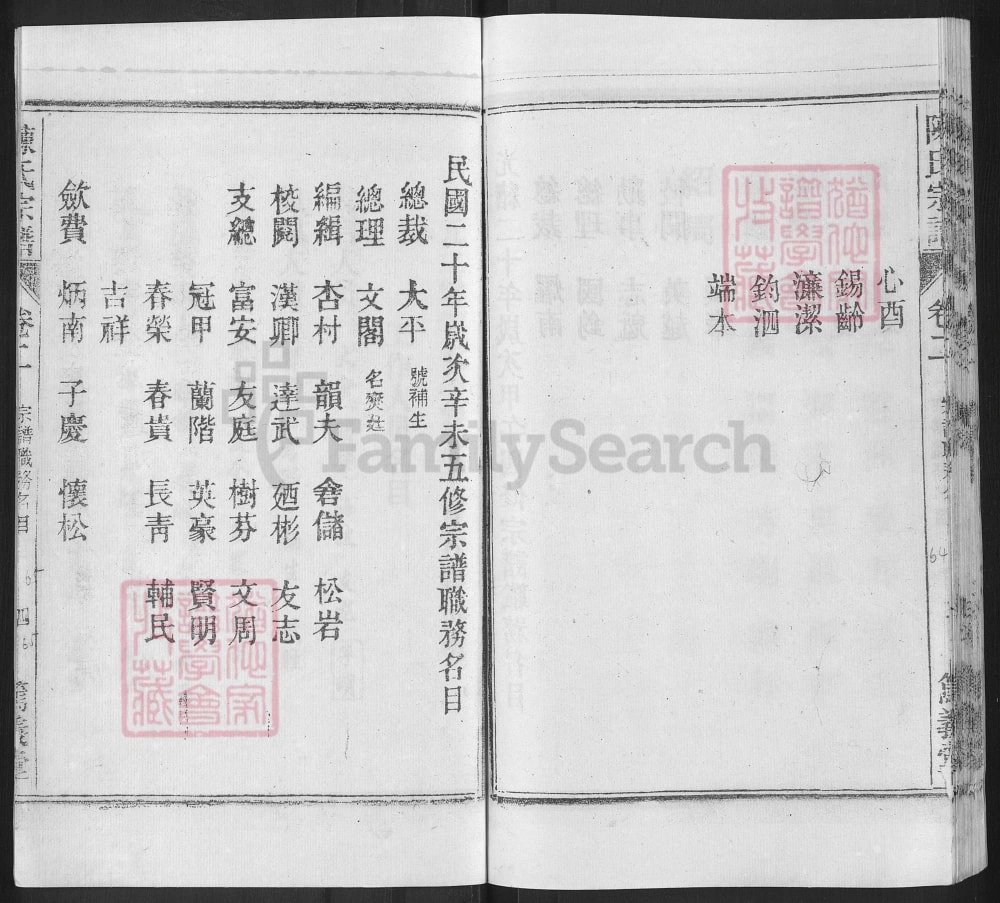 陳氏宗譜 卷二
篤義堂
心酉
錫齡
濂潔
釣泗
端本
民國二十年歲次辛未五修宗譜職務名目
總裁 大平 號補生
總理 文閣
編緝 杏村 韻夫 舍儲 松岩
校閱 漢卿 達武 廼彬 友志
支總 富安 友庭 樹芬 文周
冠甲 蘭階 英豪 賢明
春榮 春貴 長青 輔民
吉祥
斂費 炳南 子慶 懷松
宗譜職務名目
四
64
FamilySearch